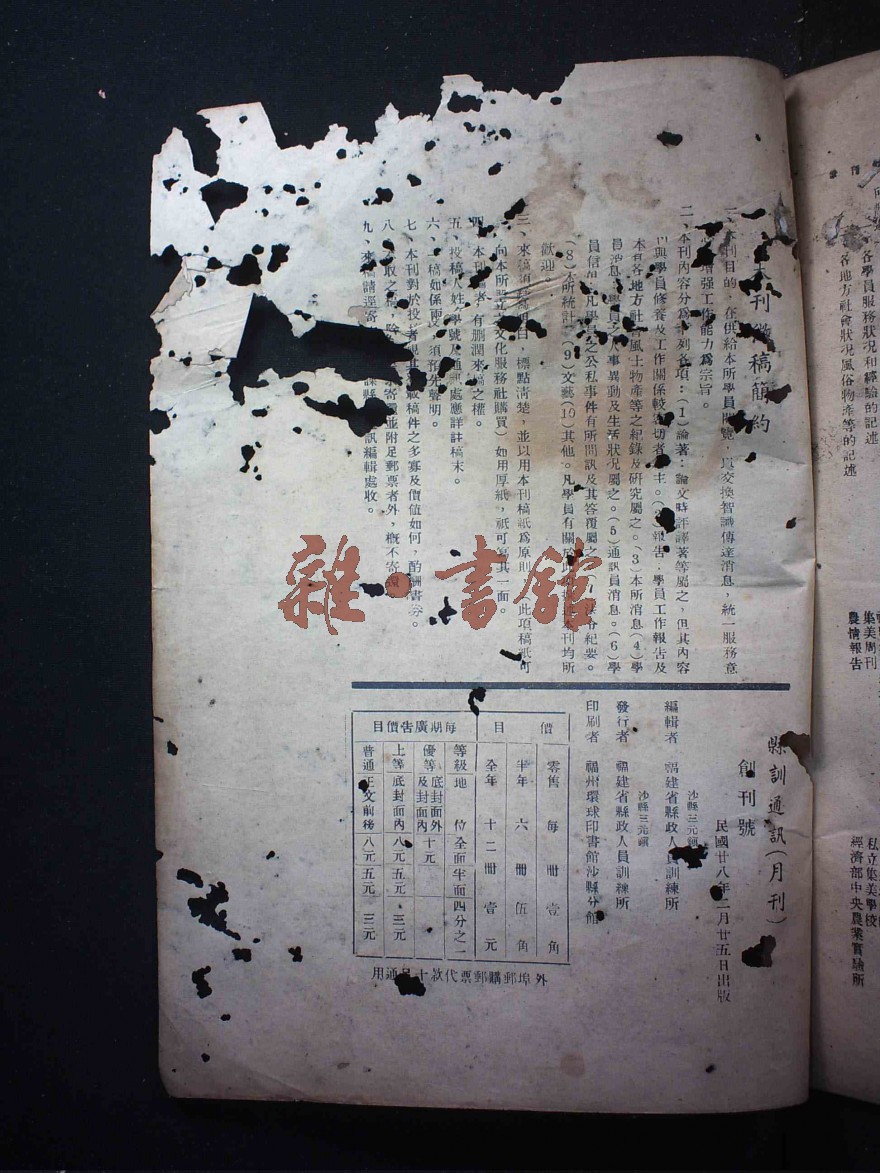 本刊徵稿簡約
本刊目的,在供給本所學員閱覽,以交換智識傳達消息,統一服務意
增强工作能力爲宗旨。
二、本刊內容分爲下列各項:(1)論著:論文時評譯著等屬之,但其內容
與學員修養及工作關係較 切者 主。 報告:學員工作報告及
本省各地方社會風土物產等之紀錄及研究屬之。(3)本所消息(4)學
員消息 學員之人事異動及生活狀况屬之。(5)通訊員消息。(6)學
員信箱:凡學員之公私事件有所問訊及其答覆屬之 紀要。
(8)本所統計 (9)文藝(10)其他。凡學員有關於 本刊均所
歡迎
三、來稿須 明白,標點清楚,並以用本刊稿紙爲原則 此項稿紙可
向本所設立之文化服務社購買)如用厚紙,祇可寫其一面
四、本刊編者 有刪潤來稿之權。
五、投稿人姓名學號及通訊處應詳註稿末。
六、一稿如係兩投 須預先聲明。
七、本刊對於投 者 載稿件之多寡及價值如何,酌酬書劵。
八、 取之稿,除 寄還並附足郵票者外,概不寄還
九、來稿請逕寄 縣 訊編輯處收。
縣訓通訊(月刊)
創刊號
民國廿八年二月廿五日出版
沙縣三元鎮
編輯者 福建省縣政人員訓練所
沙縣三元鎮
發行者 福建省縣政人員訓練所
印刷者 福州環球印書館沙縣分館
價目
零售 每冊 壹角
半年 六冊 伍角
全年 十二冊 壹元
每期廣告價目
等級 地位 全面 半面 四分之一
優等 底封面外及封面內 十元
上等 底封面內 八元 五元 三元
普通 正文前後 八元 五元 三元
外埠郵購郵票代款十足通用
各學員服務狀况和經驗的記述
各地方社會狀况風俗物產等的記述
集美周刊
農情報告
私立集美學校
經濟部中央農業實驗所
雜·書館